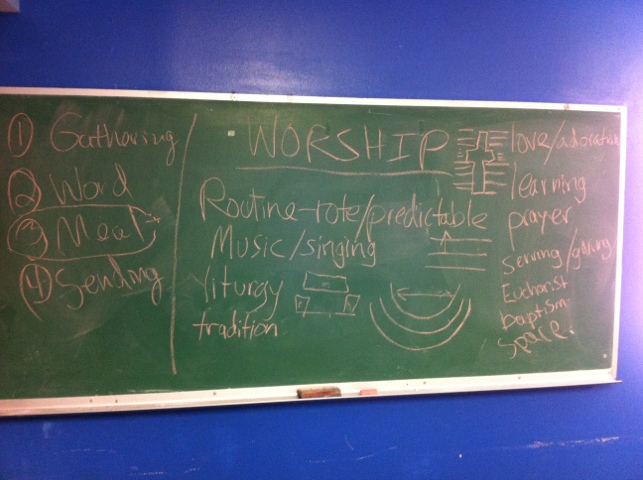 ① Gathering
② Word
③ Meal
④ Sending
WORSHIP
Routine-rote/predictable
Music/singing
liturgy
tradition
love/adoration
learning
prayer
serving/giving
Eucharist
baptism
space.